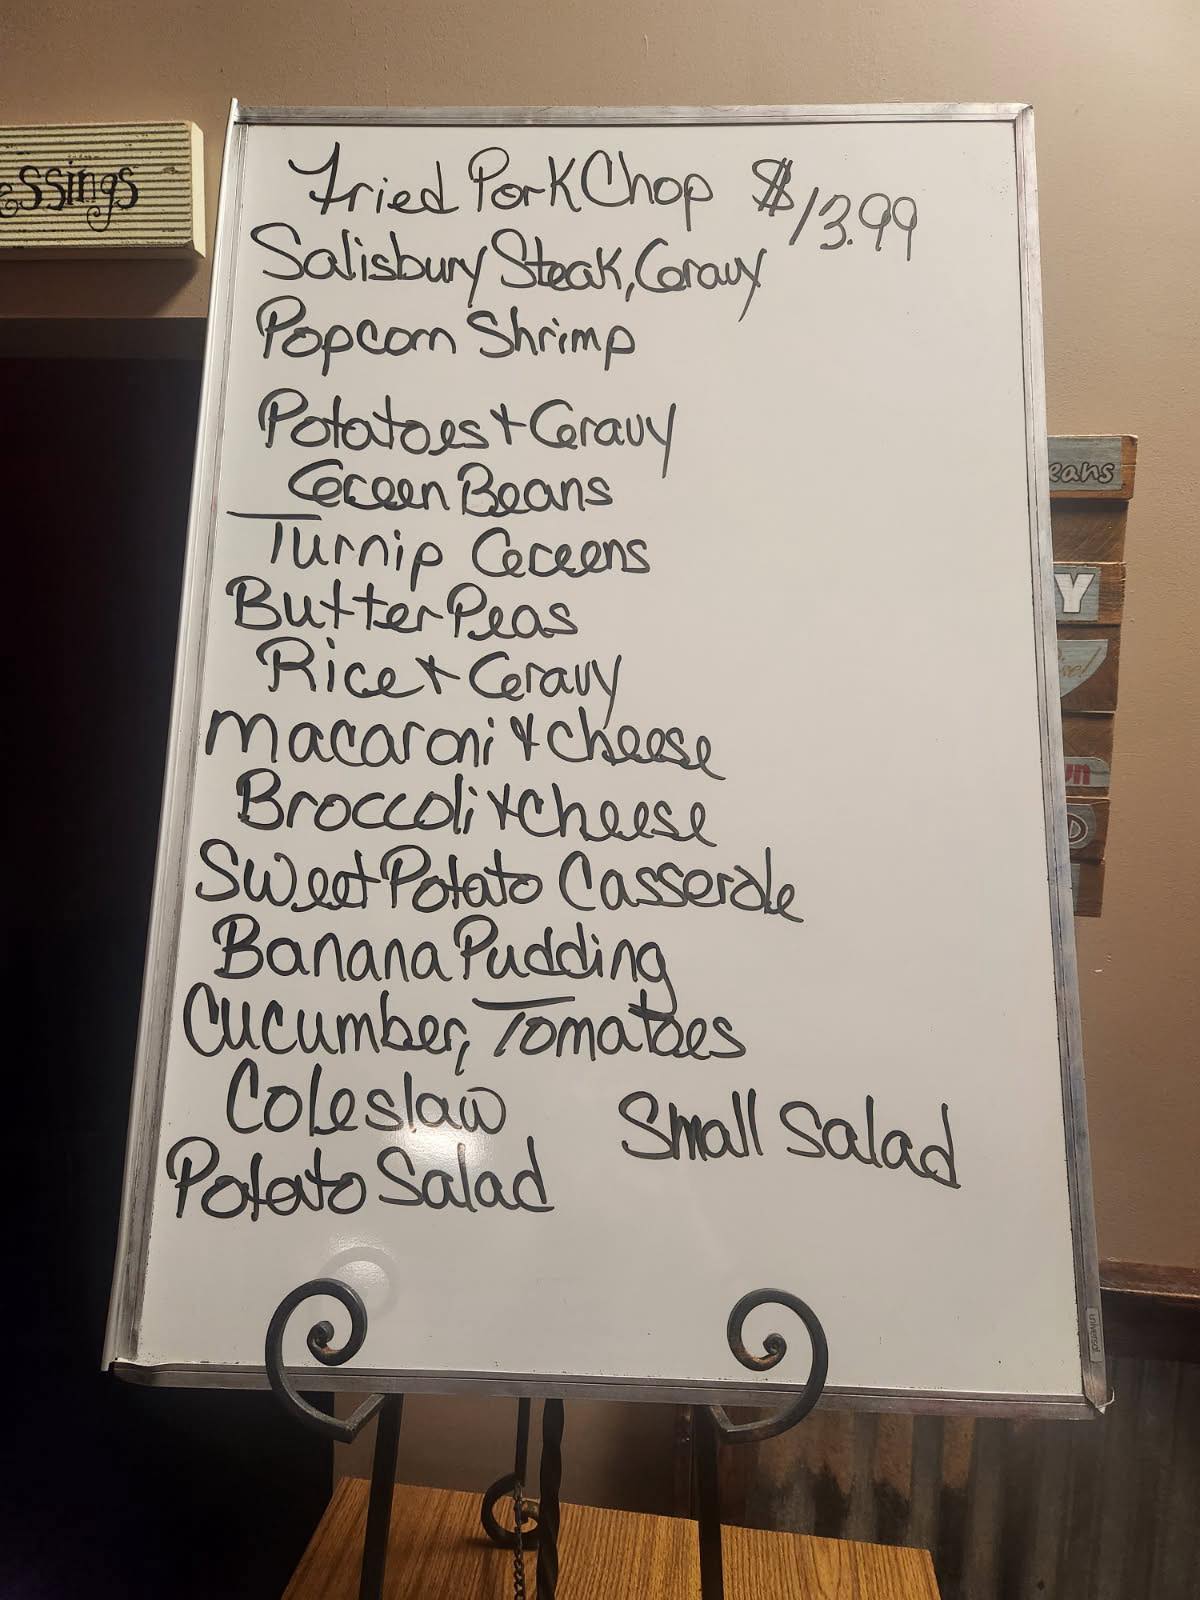 essings
Fried Pork Chop $13.99
Salisbury Steak, Gravy
Popcorn Shrimp
Potatoes + Gravy
Green Beans
Turnip Greens
Butter Peas
Rice + Gravy
Macaroni & Cheese
Broccoli & Cheese
Sweet Potato Casserole
Banana Pudding
Cucumber, Tomatoes
Coleslaw
Small Salad
Potato Salad
eans
Y
universal